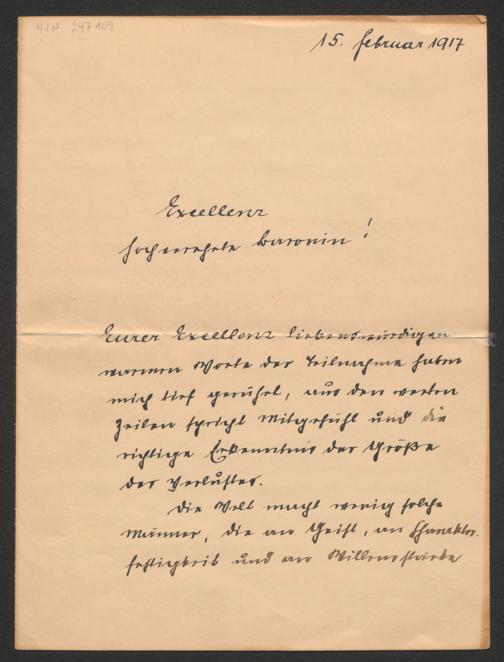 H.I.N. 247109
15. Februar 1917
Excellenz
hochverehrte Baronin!
Eurer Excellenz liebenswürdigen
warmen Worte der Teilnahme haben
mich tief gerührt, aus den werten
Zeilen spricht Mitgefühl und die
richtige Erkenntnis der Größe
des Verlustes.
Die Welt macht wenig solche
Männer, die an Geist, an Charakter-
festigkeit und an Willensstärke